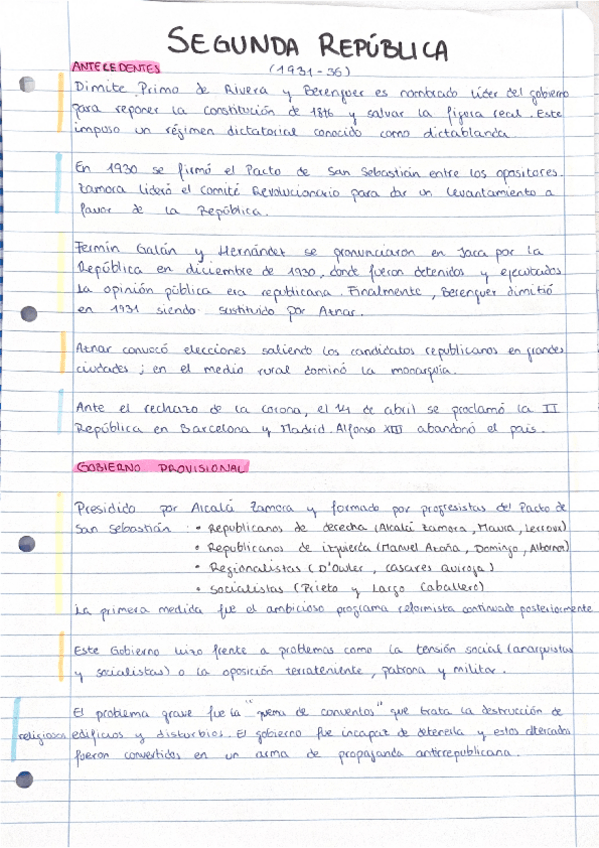 SEGUNDA REPÚBLICA
(1931-36)
ANTECEDENTES
Dimite Primo de Rivera y Berenguer es nombrado líder del gobierno
para reponer la constitución de 1876 y salvar la figura real. Este
impuso un régimen dictatorial conocido como dictablanda.
En 1930 se firmó el Pacto de San Sebastián entre los opositores.
Zamora lideró el Comité Revolucionario para dar un levantamiento a
favor de la República.
Fermín Galán y Hernández se pronunciaron en Jaca por la
República en diciembre de 1930, donde fueron detenidos y ejecutados
La opinión pública era republicana. Finalmente, Berenguer dimitió
en 1931 siendo sustituido por Aznar.
Aznar convocó elecciones saliendo los candidatos republicanos en grandes
ciudades; en el medio rural dominó la monarquía.
Ante el rechazo de la corona, el 14 de abril se proclamó la II
República en Barcelona y Madrid. Alfonso XIII abandonó el país.
GOBIERNO PROVISIONAL
Presidido por Alcalá Zamora y formado por progresistas del Pacto de
San Sebastián: • Republicanos de derecha (Alcalá Zamora, Maura, Lerroux)
• Republicanos de izquierda (Manuel Azaña, Domingo, Albornoz)
• Regionalistas (D'Owler, Casares Quiroja)
• Socialistas (Prieto y Largo Caballero)
La primera medida fue el ambicioso programa reformista continuado posteriormente
Este Gobierno hizo frente a problemas como la tensión social (anarquistas
y socialistas) o la oposición terrateniente, patrona y militar.
El problema grave fue la "quema de conventos" que trata la destrucción de
religiosos edificios y disturbios. El gobierno fue incapaz de detenerla y estos altercados
fueron convertidos en un arma de propaganda antirrepublicana.